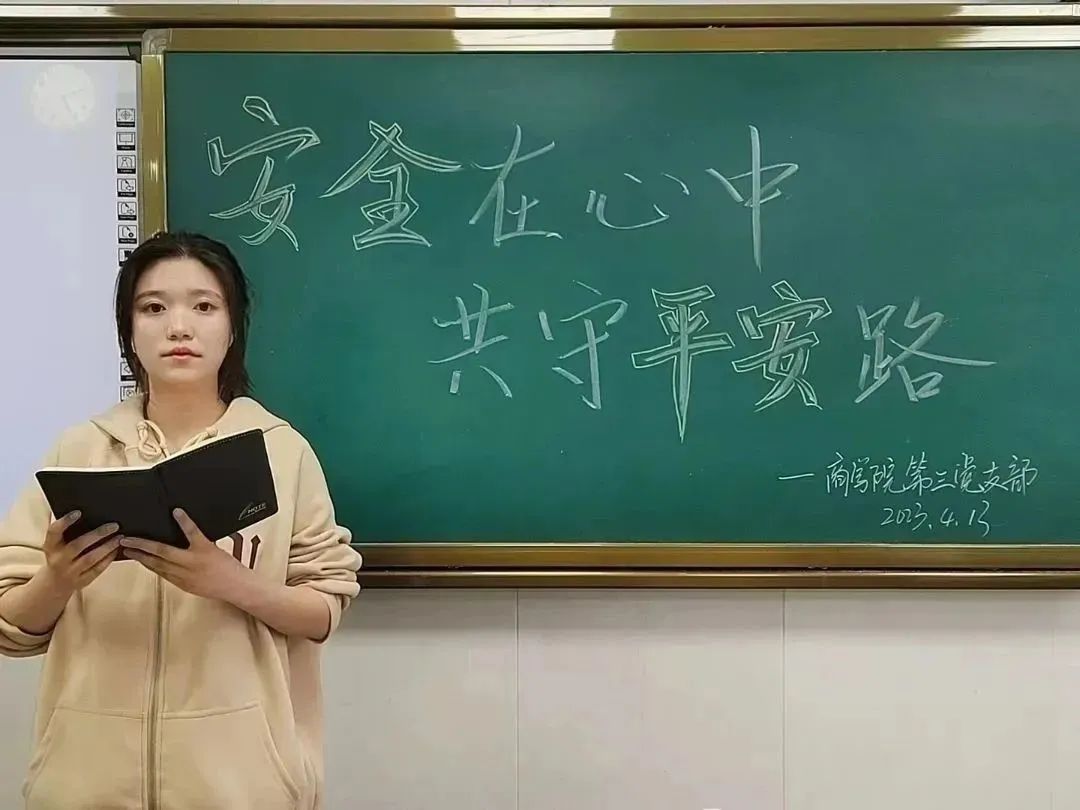 安全在心中
共守平安路
—商学院第三党支部
2023.4.13
NOTE